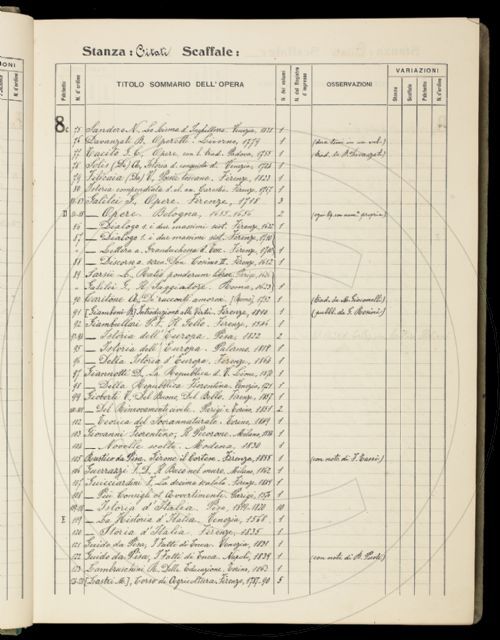 Stanza: Citati Scaffale:
VARIAZIONI
Palchetto N. d'ordine TITOLO SOMMARIO DELL'OPERA N. dei volumi N. del Registro d'ingresso OSSERVAZIONI Stanza Scaffale Palchetto N. d'ordine
8c 75 Sandero N., Lo Scisma d'Inghilterra. Venezia, 1
76 Davanzati B., Operette. Livorno, 1779 1
77 Tacito S. C., Opere, con l. trad. Padova, 1755 1 (trad. da B. Davanzati)
78 Solis (De) A., Istoria d. conquista d. Venezia, 1
79 Filicaia (Da) V., Poesie toscane. Firenze, 1823 1
80 Istoria compendiata d. Firenze, 1767 1
Galilei G., Opere. Firenze, 1718 3
— Opere. Bologna, 1655-1656 2
86 — Dialogo s. i due massimi sist. Firenze, 1632 1
87 — Dialogo s. i due massimi sist. Firenze, 1710
— Lettera a Granduchessa d. Tosc. Firenze, 1710 1
88 — Discorso Don Cosimo II. Firenze, 1612 1
89 Sarsio L., Ratio ponderum librae.
Galilei G., Il Saggiatore. Roma, 1623 1
90 Caritone A., De' racconti amorosi. [Roma] 1752 1 (trad. da M. Giacomelli)
91 [Giamboni B.] Introduzione alle Virtù. Firenze, 1810 1 (pubbl. da G. Rosini)
92 Giambullari P. F., Il Gello. Firenze, 1546 1
— Istoria dell'Europa. Pisa, 1822 2
95 — Istoria dell'Europa. Palermo, 1
96 — Della Istoria d'Europa. Firenze, 1
97 Giannotti D., La Republica d. V. 1570 1
98 — Della Repubblica Fiorentina. Venezia, 1721 1
99 Gioberti V., Del Buono, Del Bello. Firenze, 1857 1
— Del Rinnovamento civile. Parigi-Torino, 1851 2
102 — Teorica del Sovrannaturale. Torino, 1849 1
103 Giovanni Fiorentino, Il Pecorone. Milano, 1
— Novelle scelte. Modena, 1830 1
105 Rustico da Pisa, Girone il Cortese. Firenze, 1855 1 (con note di F. Tassi)
106 Guerrazzi F. D., Il Buco nel muro. Milano, 1862 1
107 Guicciardini F., La decima scalata. Firenze, 1
108 — Più Consigli et Avvertimenti. Parigi, 1576 1
— Istoria d'Italia. Pisa, 1819-1820 10
— La Historia d'Italia. Venezia, 1568 1
120 — Storia d'Italia. Firenze, 1835 1
121 Guido da Pisa, I Fatti di Enea. Venezia, 1
122 Guido da Pisa, I Fatti di Enea. Napoli, 1839 1 (con note di B. Puoti)
123 Lambruschini R., Della Educazione. Torino, 1863 1
[Lastri M.], Corso di Agricoltura. Firenze, 1787-90 5